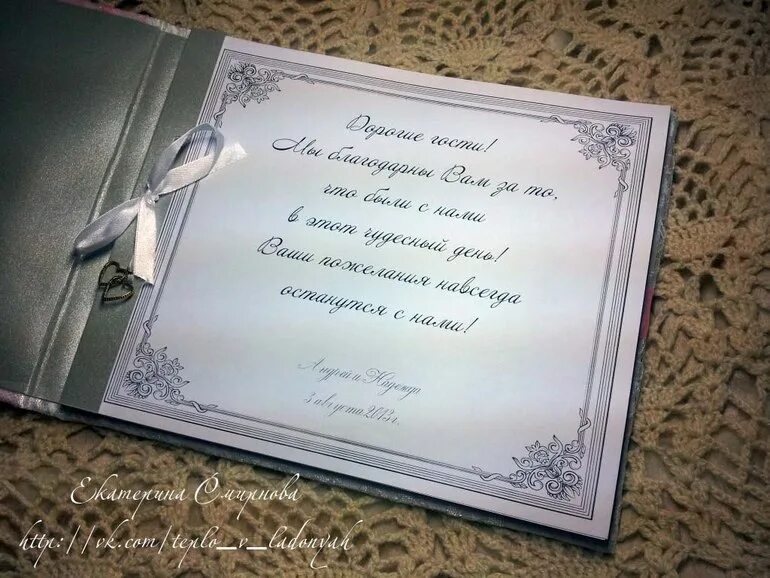 Дорогие гости!
Мы благодарны Вам за то,
что были с нами
в этот чудесный день!
Ваши пожелания навсегда
останутся с нами!
Андрей и Надежда
3 августа 2013г.
Екатерина Смирнова
http://vk.com/teplo_v_ladonyah